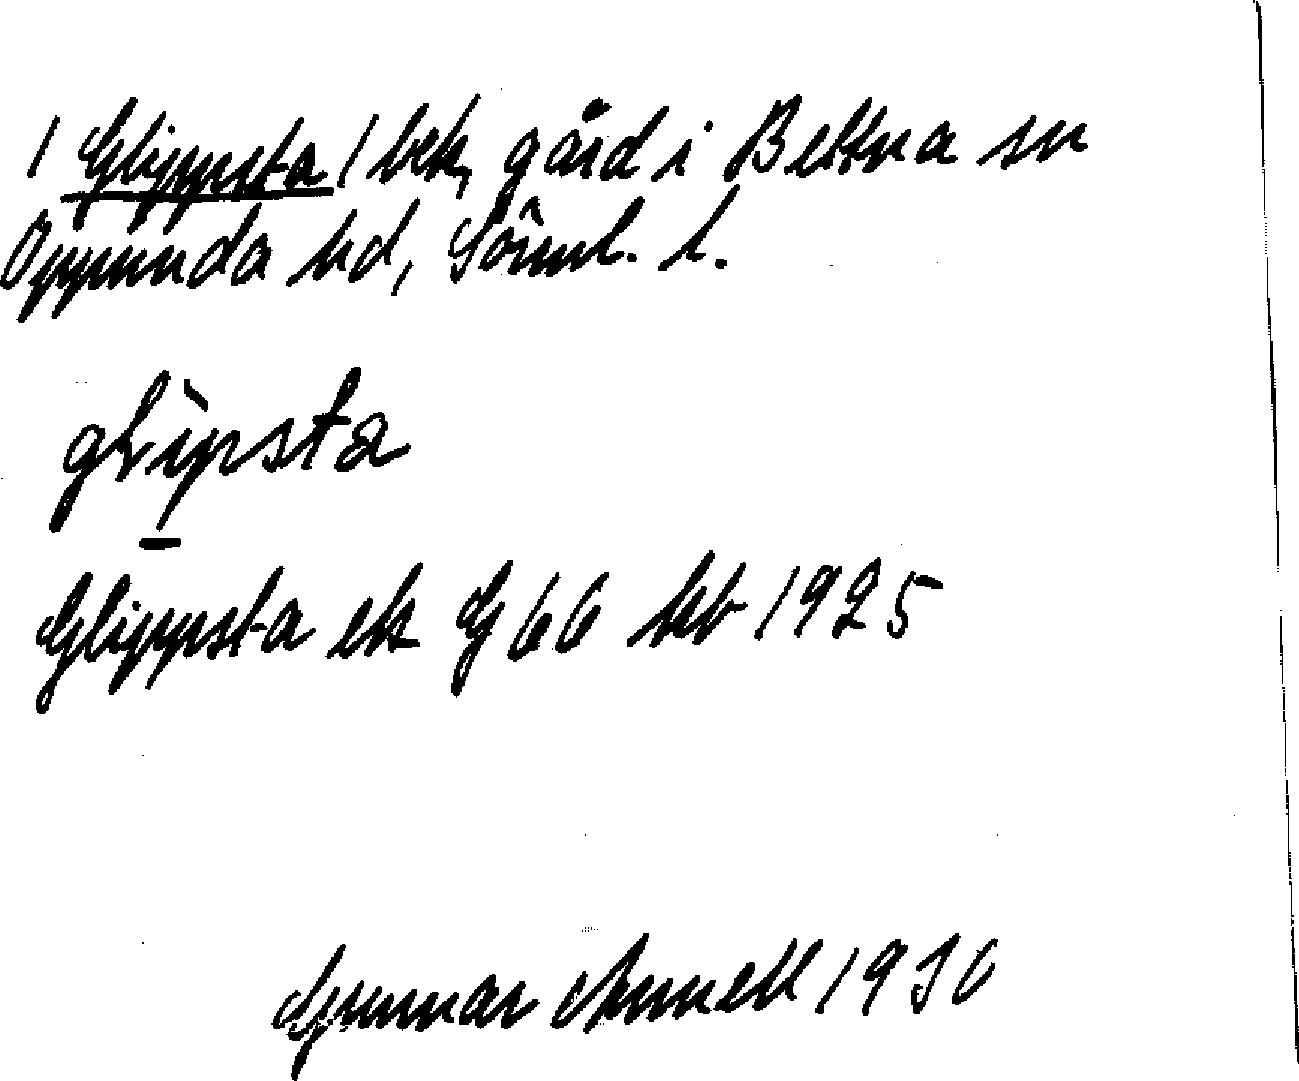 / Glippsta / bek, gård i Bettna sn
Oppunda hd, Söml. l.
glìpsta
Glippsta ek G 66 kb 1925
Gunnar Annell 1930